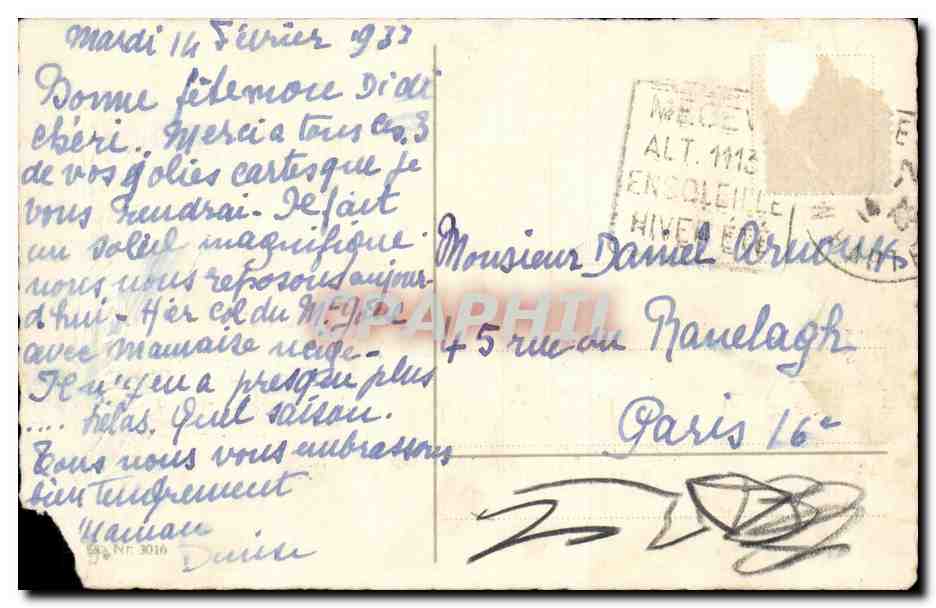 Mardi 14 Février 1933
Bonne fête mon Didi
chéri. Merci a tous les 3
de vos jolies cartes que je
vous rendrai - Il fait
un soleil magnifique.
nous nous reposons aujour-
d'hui - Hier col du M. Joli
avec mauvaise neige -
Il n'y en a presque plus
.... hélas. Quel saison.
Tous nous vous embrassons
bien tendrement
Maman
Denise
Nr. 3016
MEGEV
ALT. 1113
ENSOLEILLE
HIVER ÉTÉ
Monsieur Daniel
45 rue du Ranelagh
Paris 16e
CPAPHIL